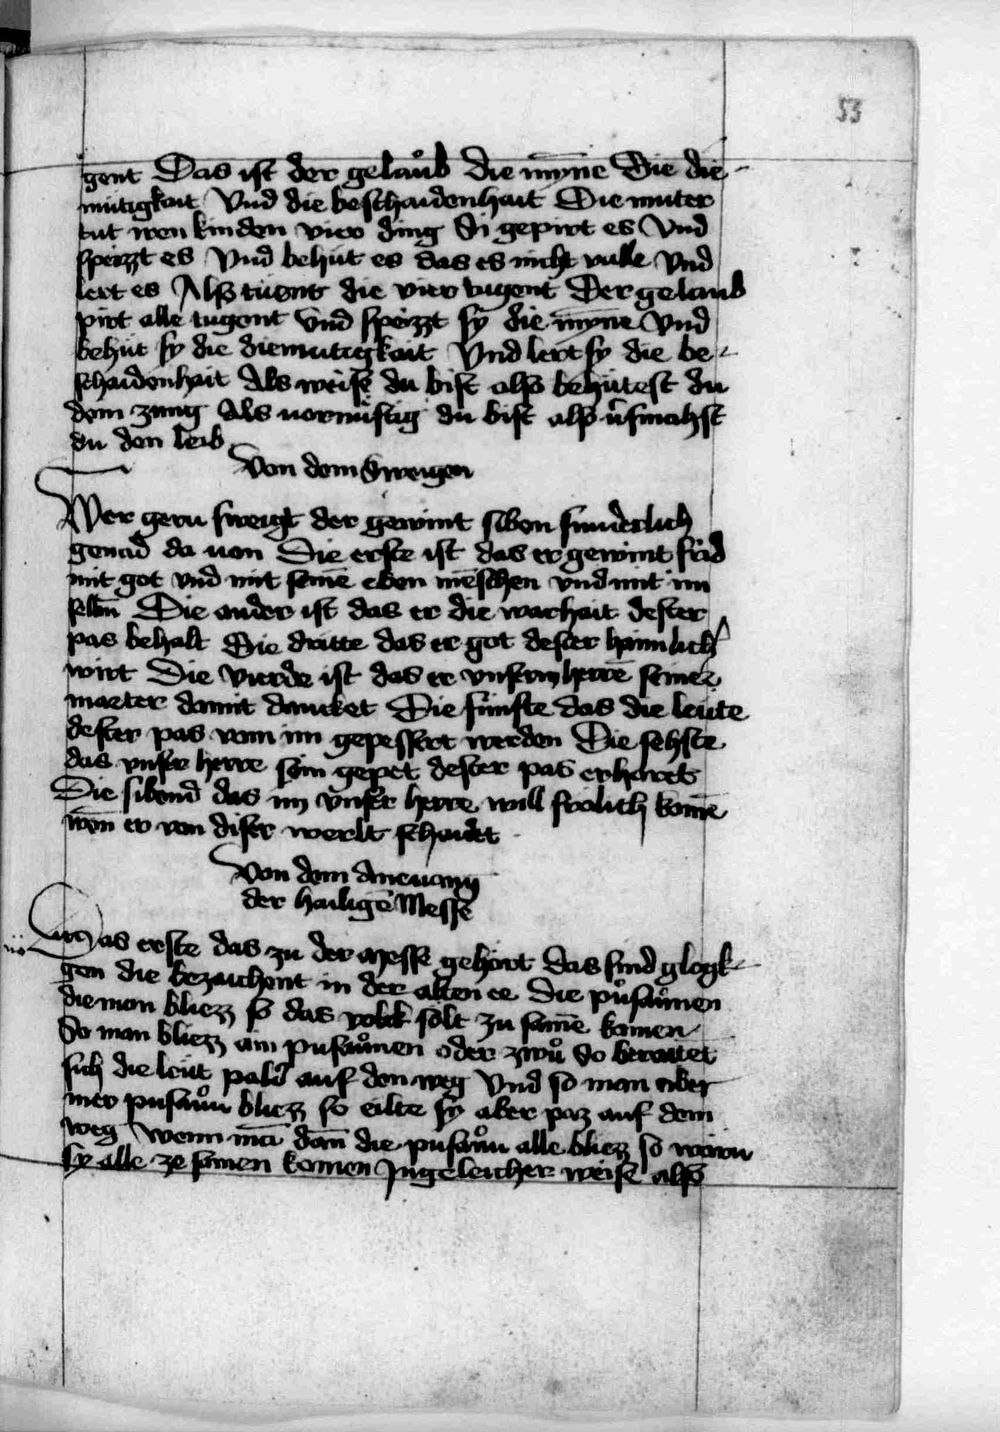 53
gent Das ist der gelaub die myne Die die
mutigkait Vnd die beschaidenhait Die muter
tut iren kinden vier ding Si gepirt es Vnd
speizzt es Vnd behut es das es nicht valle Vnd
lert es Alß tuent die vier tugent Der gelaub
pirt alle tugent Vnd speizzt sy die myne Vnd
behut sy die diemutigkait Vnd lert sy die be
schaidenhait Als weise du bist alß behutest du
dein zung Als vernuftig du bist alß
du den leib
Von dem Sweigen
Wer gern sweigt der gewint siben sunderlich
genad da von Die erste ist das er gewint frid
mit got vnd mit seinē eben mēschen vnd mit im
selbn Die ander ist das er die warhait dester
pas behalt Die dritte das er got dester haimlich
wirt Die vierde ist das er vnserm herrē seiner
marter damit dancket Die fünfte das die leute
dester pas von im gepessert werden Die sehste
das vnser herre sein gepet dester pas erhoret
Die sibend das im vnser herre will frolich komē
wen er von diser werlt schaidet
Von dem Anevang
der hailigē Messe
Das erste das zu der Messe gehort das sind glogk
gen die bezaichent in der alten ee Die pusaumen
die man bliezz so das volck solt zu samē komen
So man bliezz ain pusaumen oder zwu So beraitet
sich die leut pald auf den weg Vnd so man aber
mer pusaun bliezz so eilte sy aber paz auf dem
weg Wenn mā dan die pusaun alle bliezz so warn
sy alle ze samen komen In geleicher weise alß